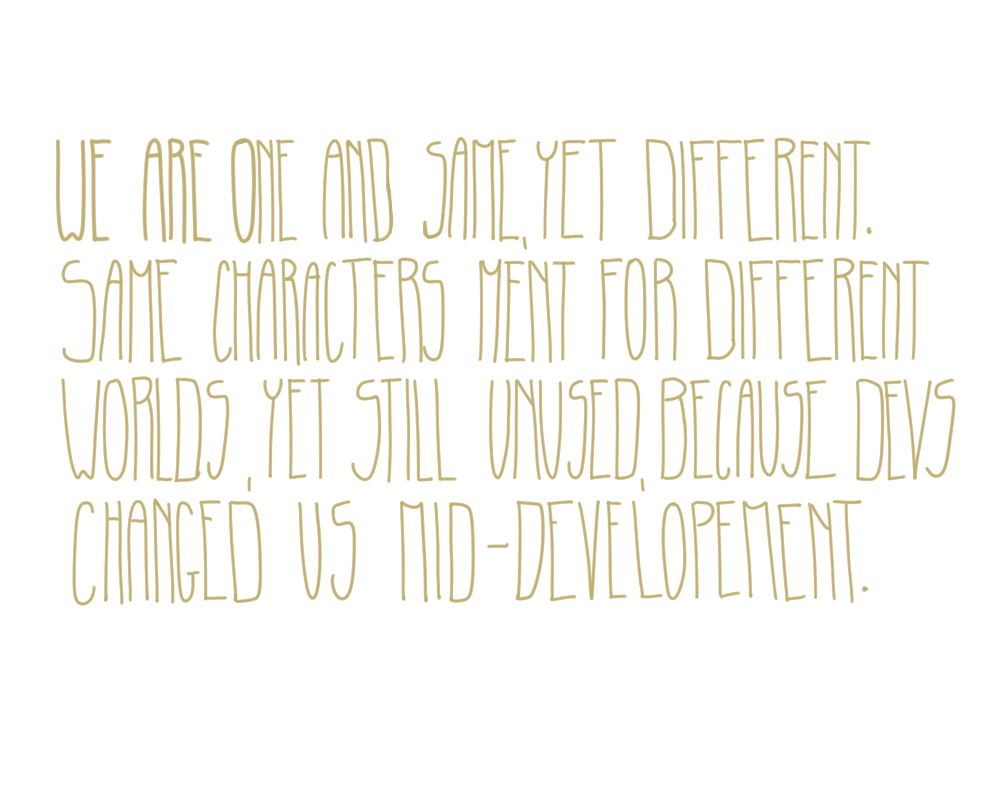 WE ARE ONE AND SAME, YET DIFFERENT.
SAME CHARACTERS MENT FOR DIFFERENT
WORLDS, YET STILL UNUSED, BECAUSE DEVS
CHANGED US MID-DEVELOPEMENT.